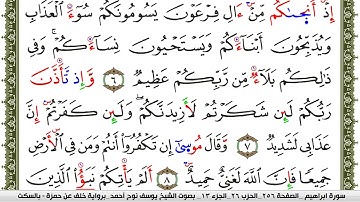 إِذْ أَنجَىٰكُم مِّنْ ءَالِ فِرْعَوْنَ يَسُومُونَكُمْ سُوٓءَ ٱلْعَذَابِ
وَيُذَبِّحُونَ أَبْنَآءَكُمْ وَيَسْتَحْيُونَ نِسَآءَكُمْ وَفِى
ذَٰلِكُم بَلَآءٌ مِّن رَّبِّكُمْ عَظِيمٌ ٦ وَإِذْ تَأَذَّنَ
رَبُّكُمْ لَئِن شَكَرْتُمْ لَأَزِيدَنَّكُمْ وَلَئِن كَفَرْتُمْ إِنَّ
عَذَابِى لَشَدِيدٌ ٧ وَقَالَ مُوسَىٰٓ إِن تَكْفُرُوٓا۟ أَنتُمْ وَمَن فِى ٱلْأَرْضِ
جَمِيعًا فَإِنَّ ٱللَّهَ لَغَنِىٌّ حَمِيدٌ ٨ أَلَمْ يَأْتِكُمْ نَبَؤُا۟ ٱلَّذِينَ
سورة ابراهيم _ الصفحة ٢٥٦ _ الحزب ٢٦ _ الجزء ١٣ _ بصوت الشيخ يوسف نوح أحمد _ برواية خلف عن حمزة - بالسكت